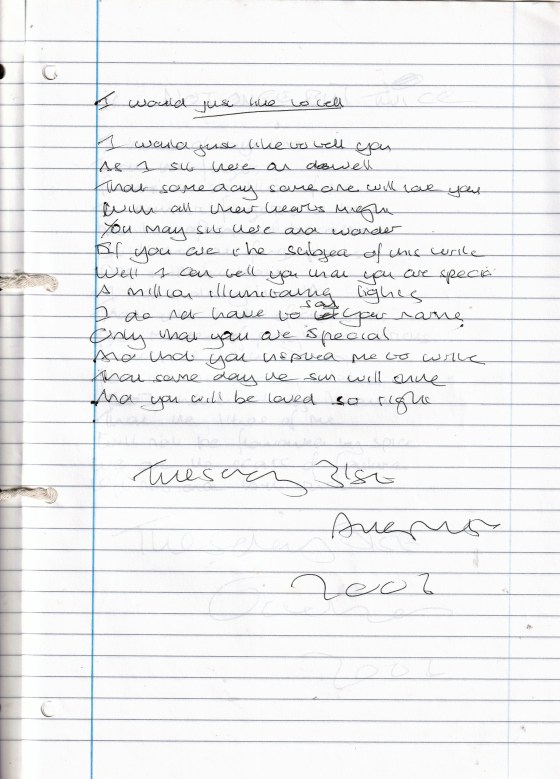 I would just like to tell
I would just like to tell you
As I sit here an dowell
That some day someone will love you
With all their hearts might
You may sit here and wonder
If you are the subject of this write
Well I can tell you that you are special
A million illuminating lights
I do not have to say your name
Only that you are special
And that you inspired me to write
That some day the sun will shine
And you will be loved so right
Tuesday 31st
2002